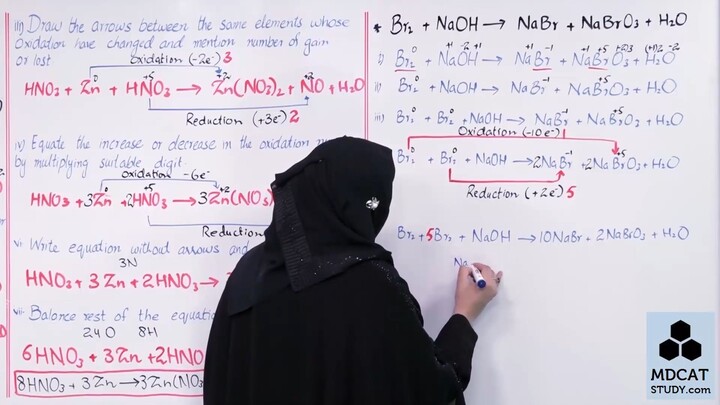 iii) Draw the arrows between the same elements whose
Oxidation have changed and mention number of gain
or lost
Oxidation (-2e⁻) 3
0 +5 +2 +2
HNO₃ + Zn + HNO₃ → Zn(NO₃)₂ + NO + H₂O
Reduction (+3e⁻) 2
iv) Equate the increase or decrease in the oxidation
by multiplying suitable digit
Oxidation -6e⁻
0 +5 +2
HNO₃ + 3Zn + 2HNO₃ → 3Zn(NO₃)
vi) Write equation without arrows and
3N
HNO₃ + 3Zn + 2HNO₃ →
vii- Balance rest of the equation
24O 8H
6HNO₃ + 3Zn + 2HNO
8HNO₃ + 3Zn → 3Zn(NO₃
* Br₂ + NaOH → NaBr + NaBrO₃ + H₂O
i) Br₂ + NaOH → NaBr + NaBrO₃ + H₂O
ii) Br₂ + NaOH → NaBr + NaBrO₃ + H₂O
iii) Br₂ + Br₂ + NaOH → NaBr + NaBrO₃ + H₂O
Oxidation (-10e⁻) 1
Br₂ + Br₂ + NaOH → 2NaBr + 2NaBrO₃ + H₂O
Reduction (+2e⁻) 5
Br₂ + 5Br₂ + NaOH → 10NaBr + 2NaBrO₃ + H₂O
Na
MDCAT
STUDY.com